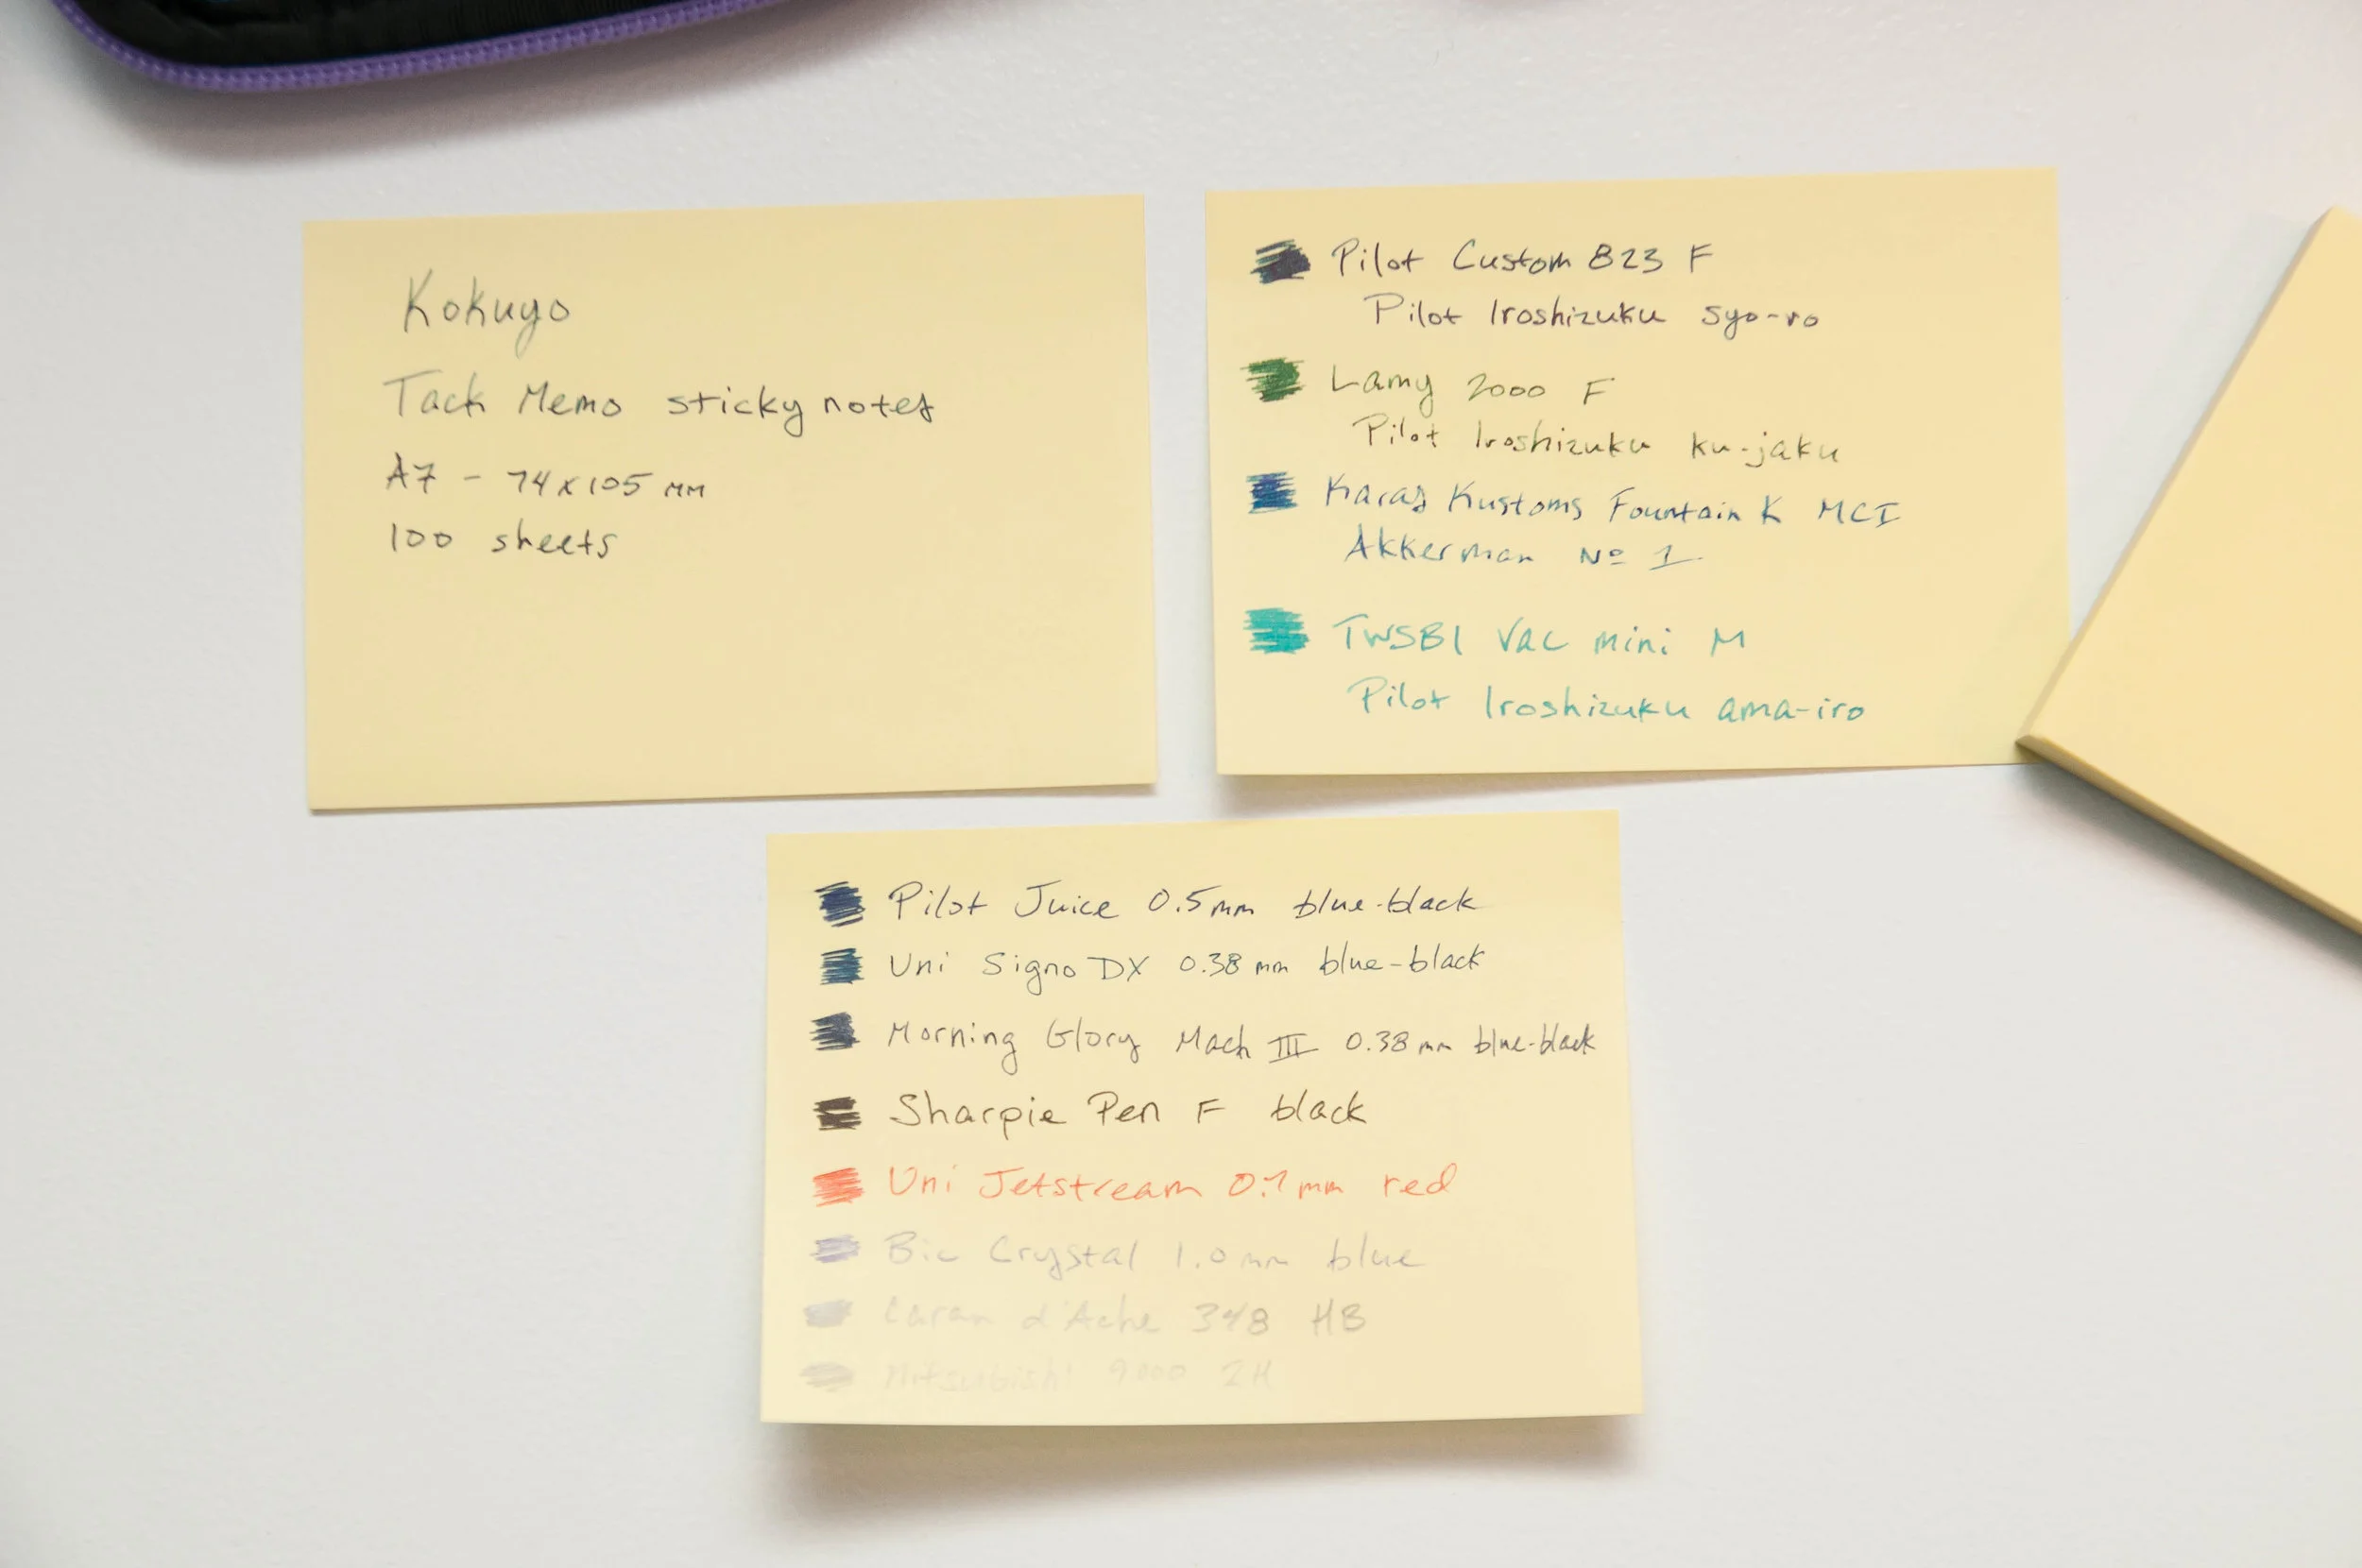 Kokuyo
Tack Memo sticky notes
A7 - 74x105 mm
100 sheets
Pilot Custom 823 F
Pilot Iroshizuku syo-ro
Lamy 2000 F
Pilot Iroshizuku ku-jaku
Karas Kustoms Fountain K MCI
Akkerman Nº 1
TWSBI Vac mini M
Pilot Iroshizuku ama-iro
Pilot Juice 0.5mm blue-black
Uni Signo DX 0.38 mm blue-black
Morning Glory Mach III 0.38 mm blue-black
Sharpie Pen F black
Uni Jetstream 0.7mm red
Bic Crystal 1.0mm blue
Caran d'Ache 348 HB
Mitsubishi 9000 2H